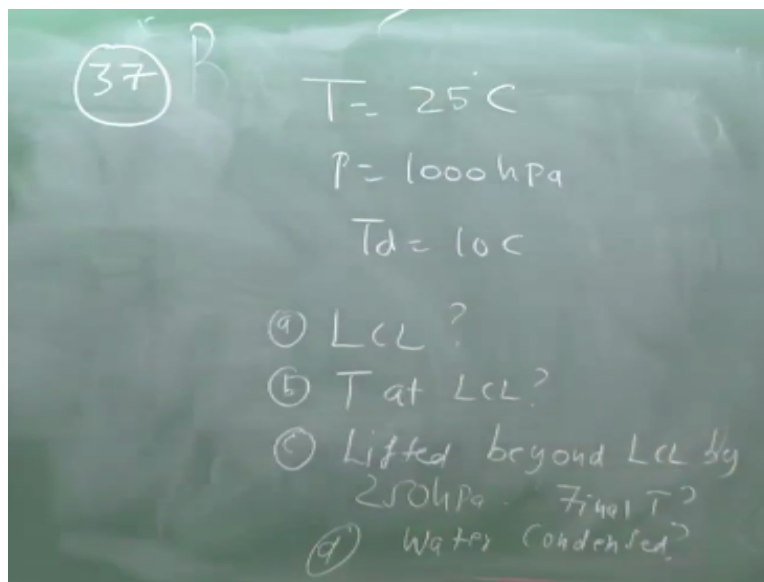 37 B
T = 25°C
P = 1000 hPa
Td = 10 C
(a) LCL?
(b) T at LCL?
(c) Lifted beyond LCL by
250hPa. Final T?
(d) Water Condensed?